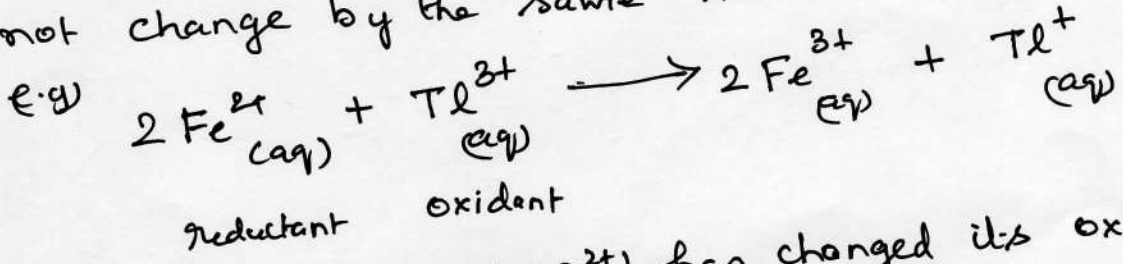 not change by the same
e.g 2 Fe²⁺(aq) + Tl³⁺(aq) ⟶ 2 Fe³⁺(aq) + Tl⁺(aq)
reductant oxidant
has changed its ox